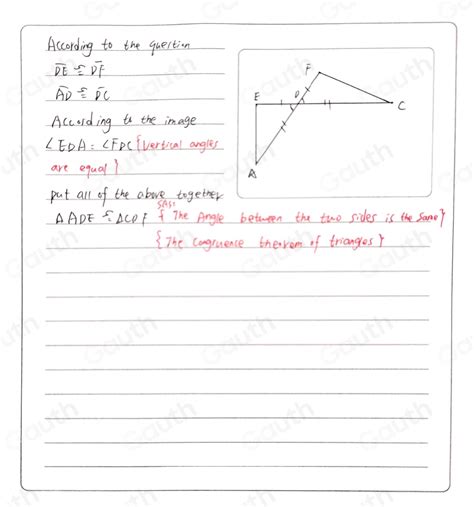 According to the question
DE ≅ DF
AD ≅ DC
According to the image
∠EDA = ∠FDC {Vertical angles
are equal}
put all of the above together
SAS:
△ADE ≅ △CDF { The Angle between the two sides is the same}
{The congruence theorem of triangles}
F
E
D
C
A
Gauth